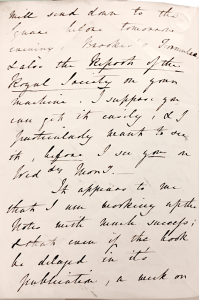 will send down to the
Square before tomorrow
evening, Brooker's Translation
& also the Reports of the
Royal Society on your
machine. I suppose you
can get it easily, & I
particularly want to see
it, before I see you on
Wed^dy Morn^g.—
It appears to me
that I am working up the
Notes with much success;
& that even if the book
be delayed in it's
publication, a week or